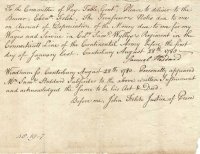 To the Committee of Pay Table Gent. Please to deliver to the
Bearer Eben Gold. The Treasurers Notes due to me
on Account of Depreciation of the Money due to me for my
Wages and Service in Col. Sam Wyllys Regiment in the
Connecticut Line of the Continental Army before the first
day of January last. Canterbury August 28th 1780
Samuel
Windham Ss Canterbury August 28th 1780. Personally appeared
Mr. Samuel Subscriber to the above written Instrument
and acknowledged the Same to be his Act & Deed
Before me, John Felch Justice of Peace